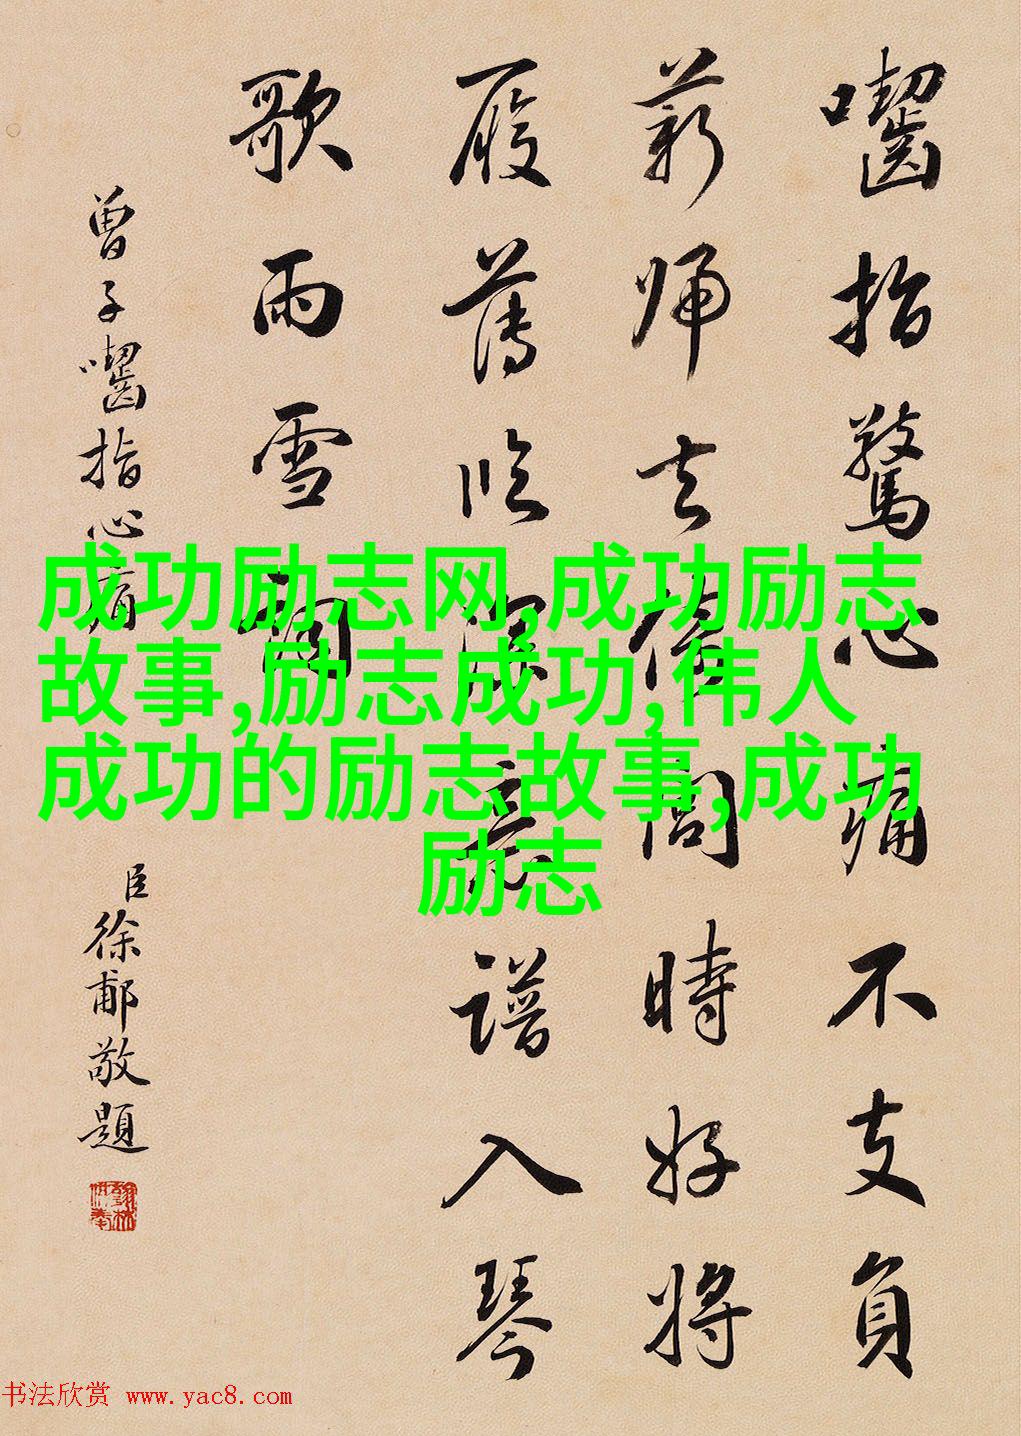 嚙指驚心痛不支負
薪歸去倚閭時好將
履薄臨深意譜入琴
歌雨雪詞
曾子嚙指心痛
臣徐郙敬題
成功励志网,成功励志
故事,励志成功,伟人
成功的励志故事,成功
励志
书法欣赏 www.yac8.com